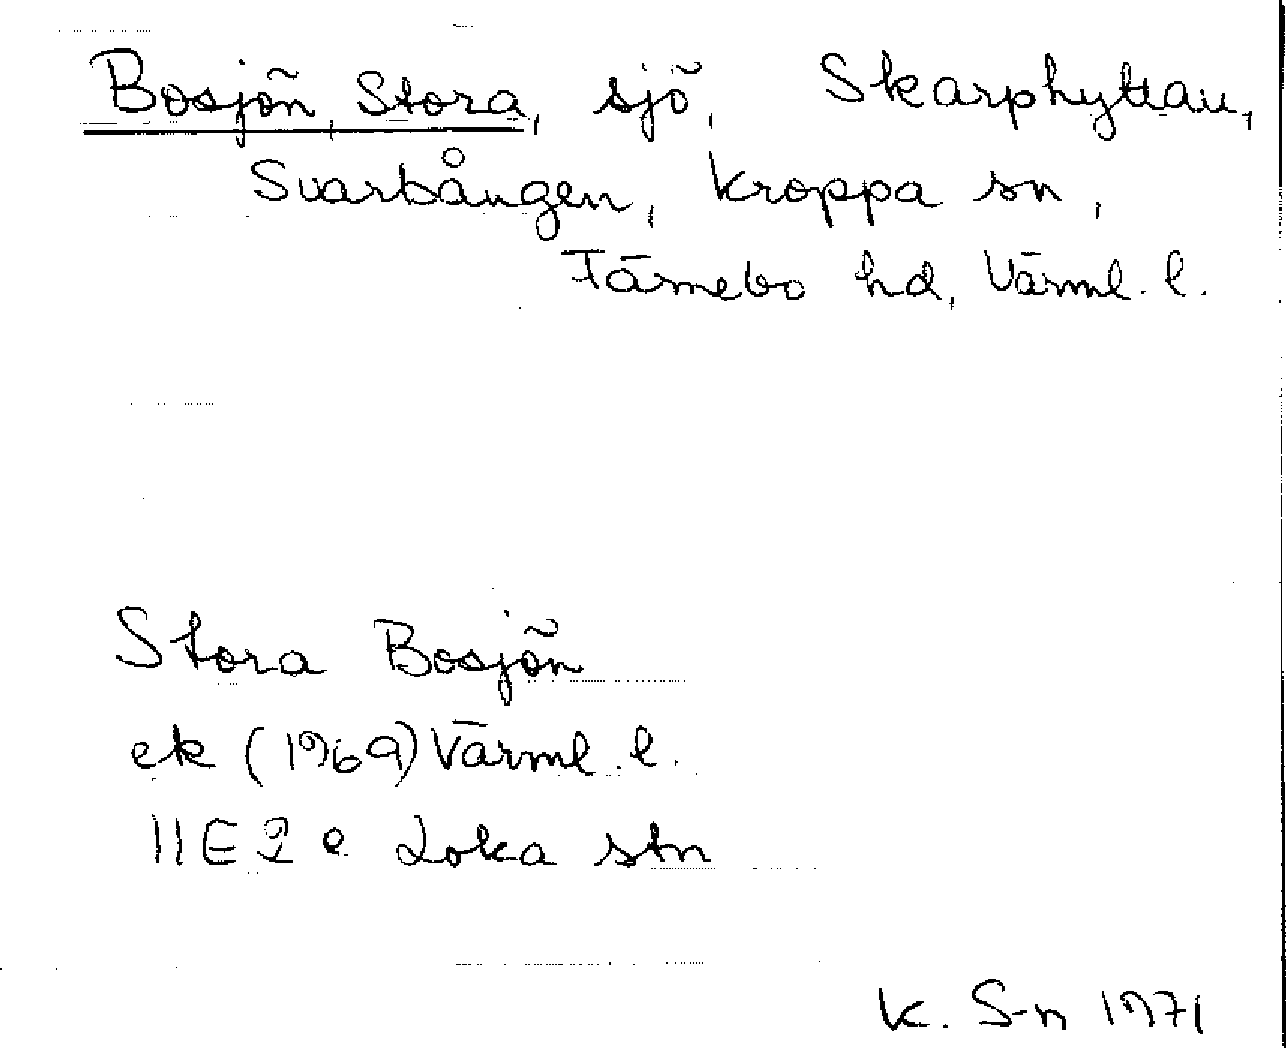 Bosjön, Stora, sjö, Skarphyttan,
Svartbången, Kroppa sn,
Färnebo hd, Värml. l.
Stora Bosjön
ek (1969) Värml. l.
11E 2e Loka stn
K. S-n 1971